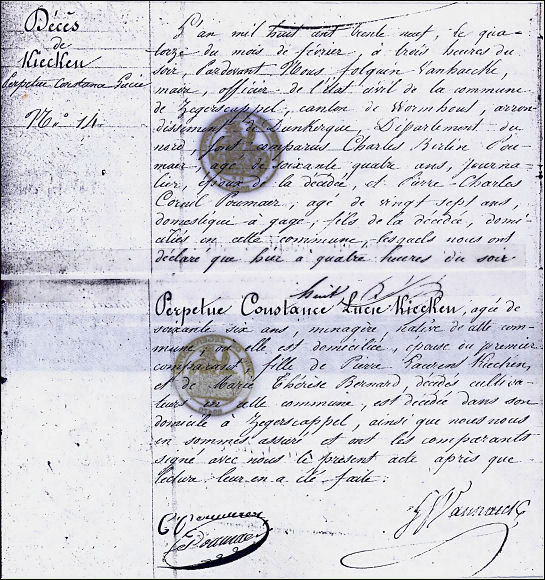 Décès
de
Kiecken
Perpetue Constance Lucie
N.o 14.
L'an mil huit cent trente neuf, le qua-
torze du mois de février, à trois heures du
soir, Pardevant Nous, folquin Vanhaecke,
maire, officier de l'état civil de la commune
de Zegerscappel, canton de Wormhout, arron-
dissement de Dunkerque, Département du
nord, sont comparus Charles Bertin Pou-
mair, agé de soixante quatre ans, journa-
lier, époux de la décédée, et Pierre Charles
Corneil Poumaer, agé de vingt sept ans,
domestique à gage, fils de la décédée, domi-
ciliés en cette commune, lesquels nous ont
déclaré que hier à quatre heures du soir
Perpetue Constance Lucie Kiecken, agée de
soixante six ans, menagère, native de cette com-
mune, où elle est domiciliée, épouse du premier
comparant, fille de Pierre Laurens Kiecken,
et de Marie Thérèse Bernard, décédés cultiva-
teurs en cette commune, est décédée dans son
domicile à Zegerscappel, ainsi que nous nous
en sommes assuré et ont les comparants
signé avec nous le présent acte après que
lecture leur en a été faite.